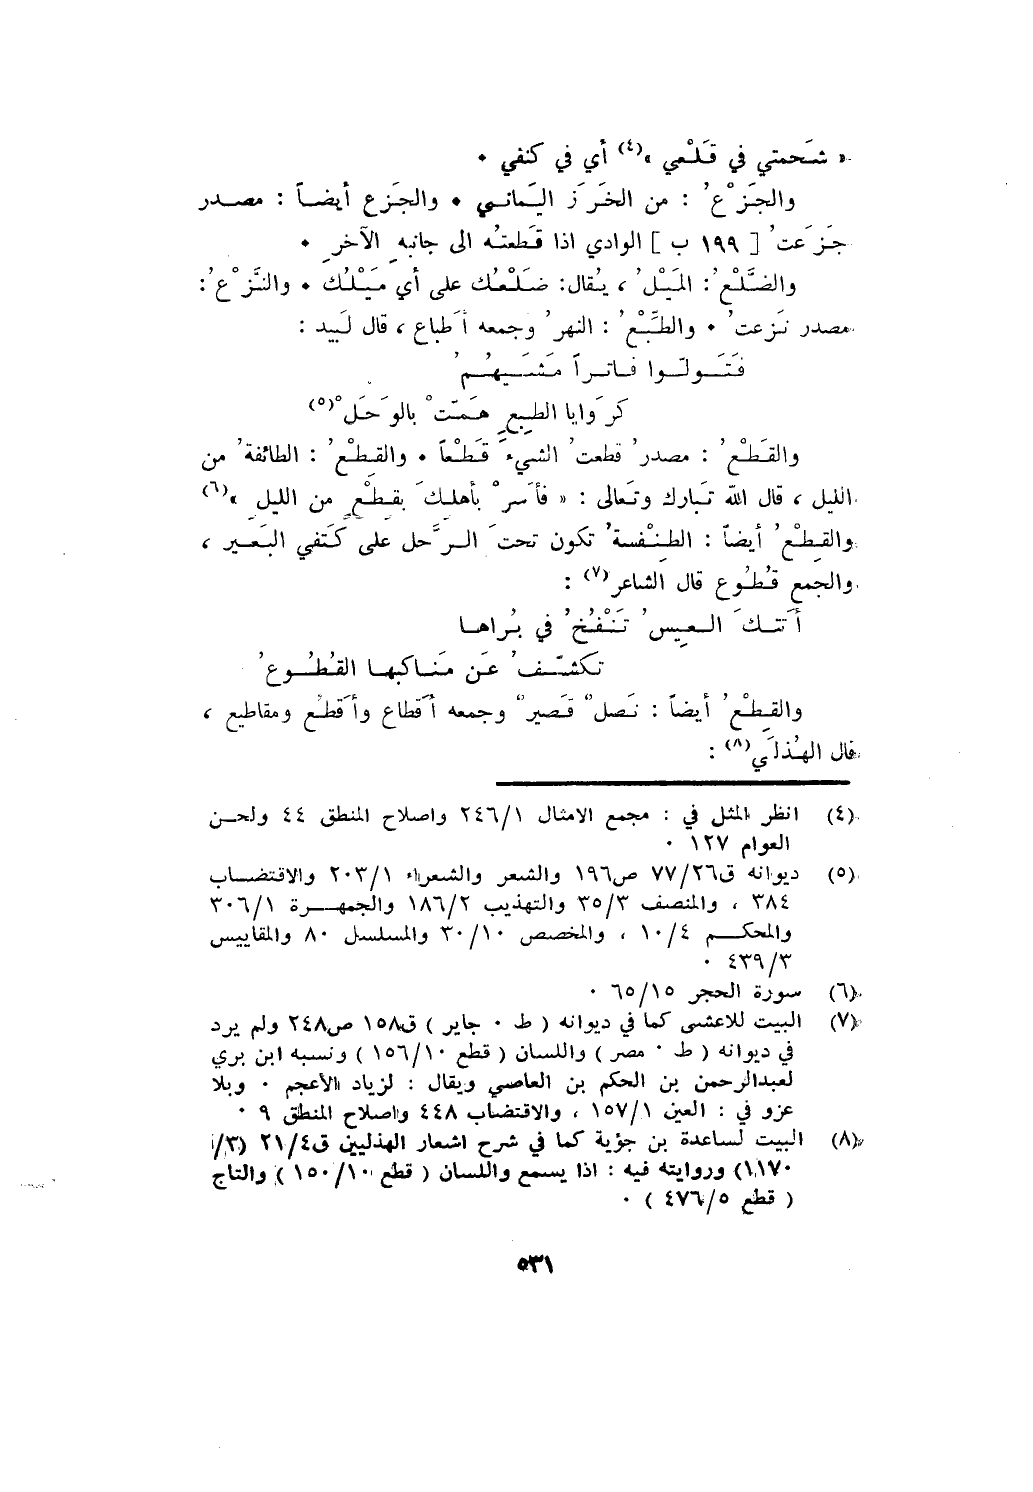 « شَحمتي في قَلْعي »(٤) أي في كنفي •
والجَزْعُ : من الخَرَز اليَماني • والجَزع أيضاً : مصدر
جَزَعتُ [ ١٩٩ ب ] الوادي اذا قَطعتُه الى جانبهِ الآخرِ •
والضَّلْعُ : المَيْلُ ، يُقال : ضَلْعُك على أي مَيْلُك • والنَّزْعُ :
مصدر نَزَعتُ • والطِّبْعُ : النهرُ وجمعه أَطباع ، قال لَبيد :
فَتَولّوا فاتراً مَشيُهُمُ
كَرَوايا الطِبعِ هَمَّتْ بالوَحَلْ(٥)
والقَطْعُ : مصدرُ قطعتُ الشيءَ قَطْعاً • والقِطْعُ : الطائفةُ من
الليل ، قال الله تَبارك وتَعالى : « فأَسرْ بأهلكَ بقِطْعٍ من الليلِ »(٦)
والقِطْعُ أيضاً : الطِنْفسةُ تكون تحتَ الرَّحل على كَتفي البَعير ،
والجمع قُطُوع قال الشاعر(٧) :
أَتتكَ العِيسُ تَنْفُخُ في بُراها
تكشّفُ عَن مَناكبها القُطُوعُ
والقِطْعُ أيضاً : نَصلٌ قَصيرٌ وجمعه أَقطاع وأَقطُع ومقاطيع ،
قال الهُذلَي(٨) :
(٤) انظر المثل في : مجمع الامثال ٢٤٦/١ واصلاح المنطق ٤٤ ولحن
العوام ١٢٧ •
(٥) ديوانه ق٧٧/٢٦ ص١٩٦ والشعر والشعراء ٢٠٣/١ والاقتضاب
٣٨٤ ، والمنصف ٣٥/٣ والتهذيب ١٨٦/٢ والجمهرة ٣٠٦/١
والمحكم ١٠/٤ ، والمخصص ٣٠/١٠ والمسلسل ٨٠ والمقاييس
٤٣٩/٣ •
(٦) سورة الحجر ٦٥/١٥ •
(٧) البيت للاعشى كما في ديوانه ( ط • جاير ) ق١٥٨ ص٢٤٨ ولم يرد
في ديوانه ( ط • مصر ) واللسان ( قطع ١٥٦/١٠ ) ونسبه ابن بري
لعبدالرحمن بن الحكم بن العاصي ويقال : لزياد الأعجم • وبلا
عزو في : العين ١٥٧/١ ، والاقتضاب ٤٤٨ واصلاح المنطق ٩ •
(٨) البيت لساعدة بن جؤية كما في شرح اشعار الهذليين ق٢١/٤ (٣/
١١٧٠) وروايته فيه : اذا يسمع واللسان ( قطع ١٥٠/١٠ ) والتاج
( قطع ٤٧٦/٥ ) •
٥٣١